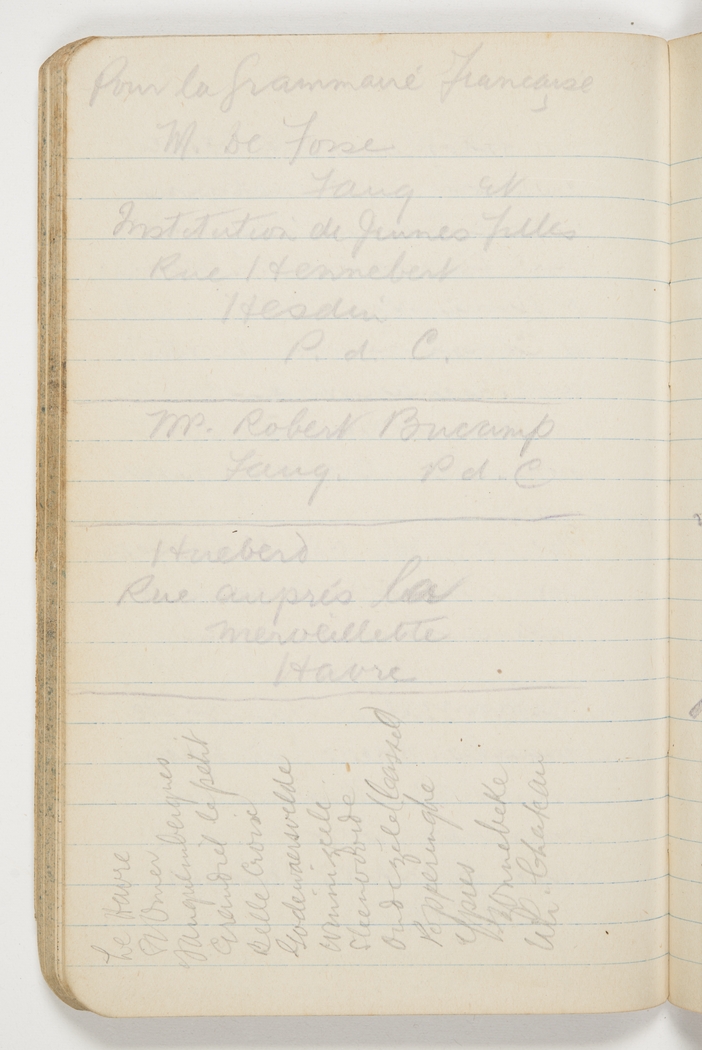 Pour la Grammaire Francaise
M. De Fosse
Fauq et
Institution de Jeunes Filles
Rue Hennebert
Hesdin
P. d. C.
Mr. Robert Bucamp
Fauq. P d. C
Hueberd
Rue auprés la
Merveillette
Havre
Le Havre
St Omer
Fauquembergues
le petit
Belle Croix
Godewaersvelde
Winnizeele
Steenvoorde
Oudezeele Cassel
Popperinghe
Ypres